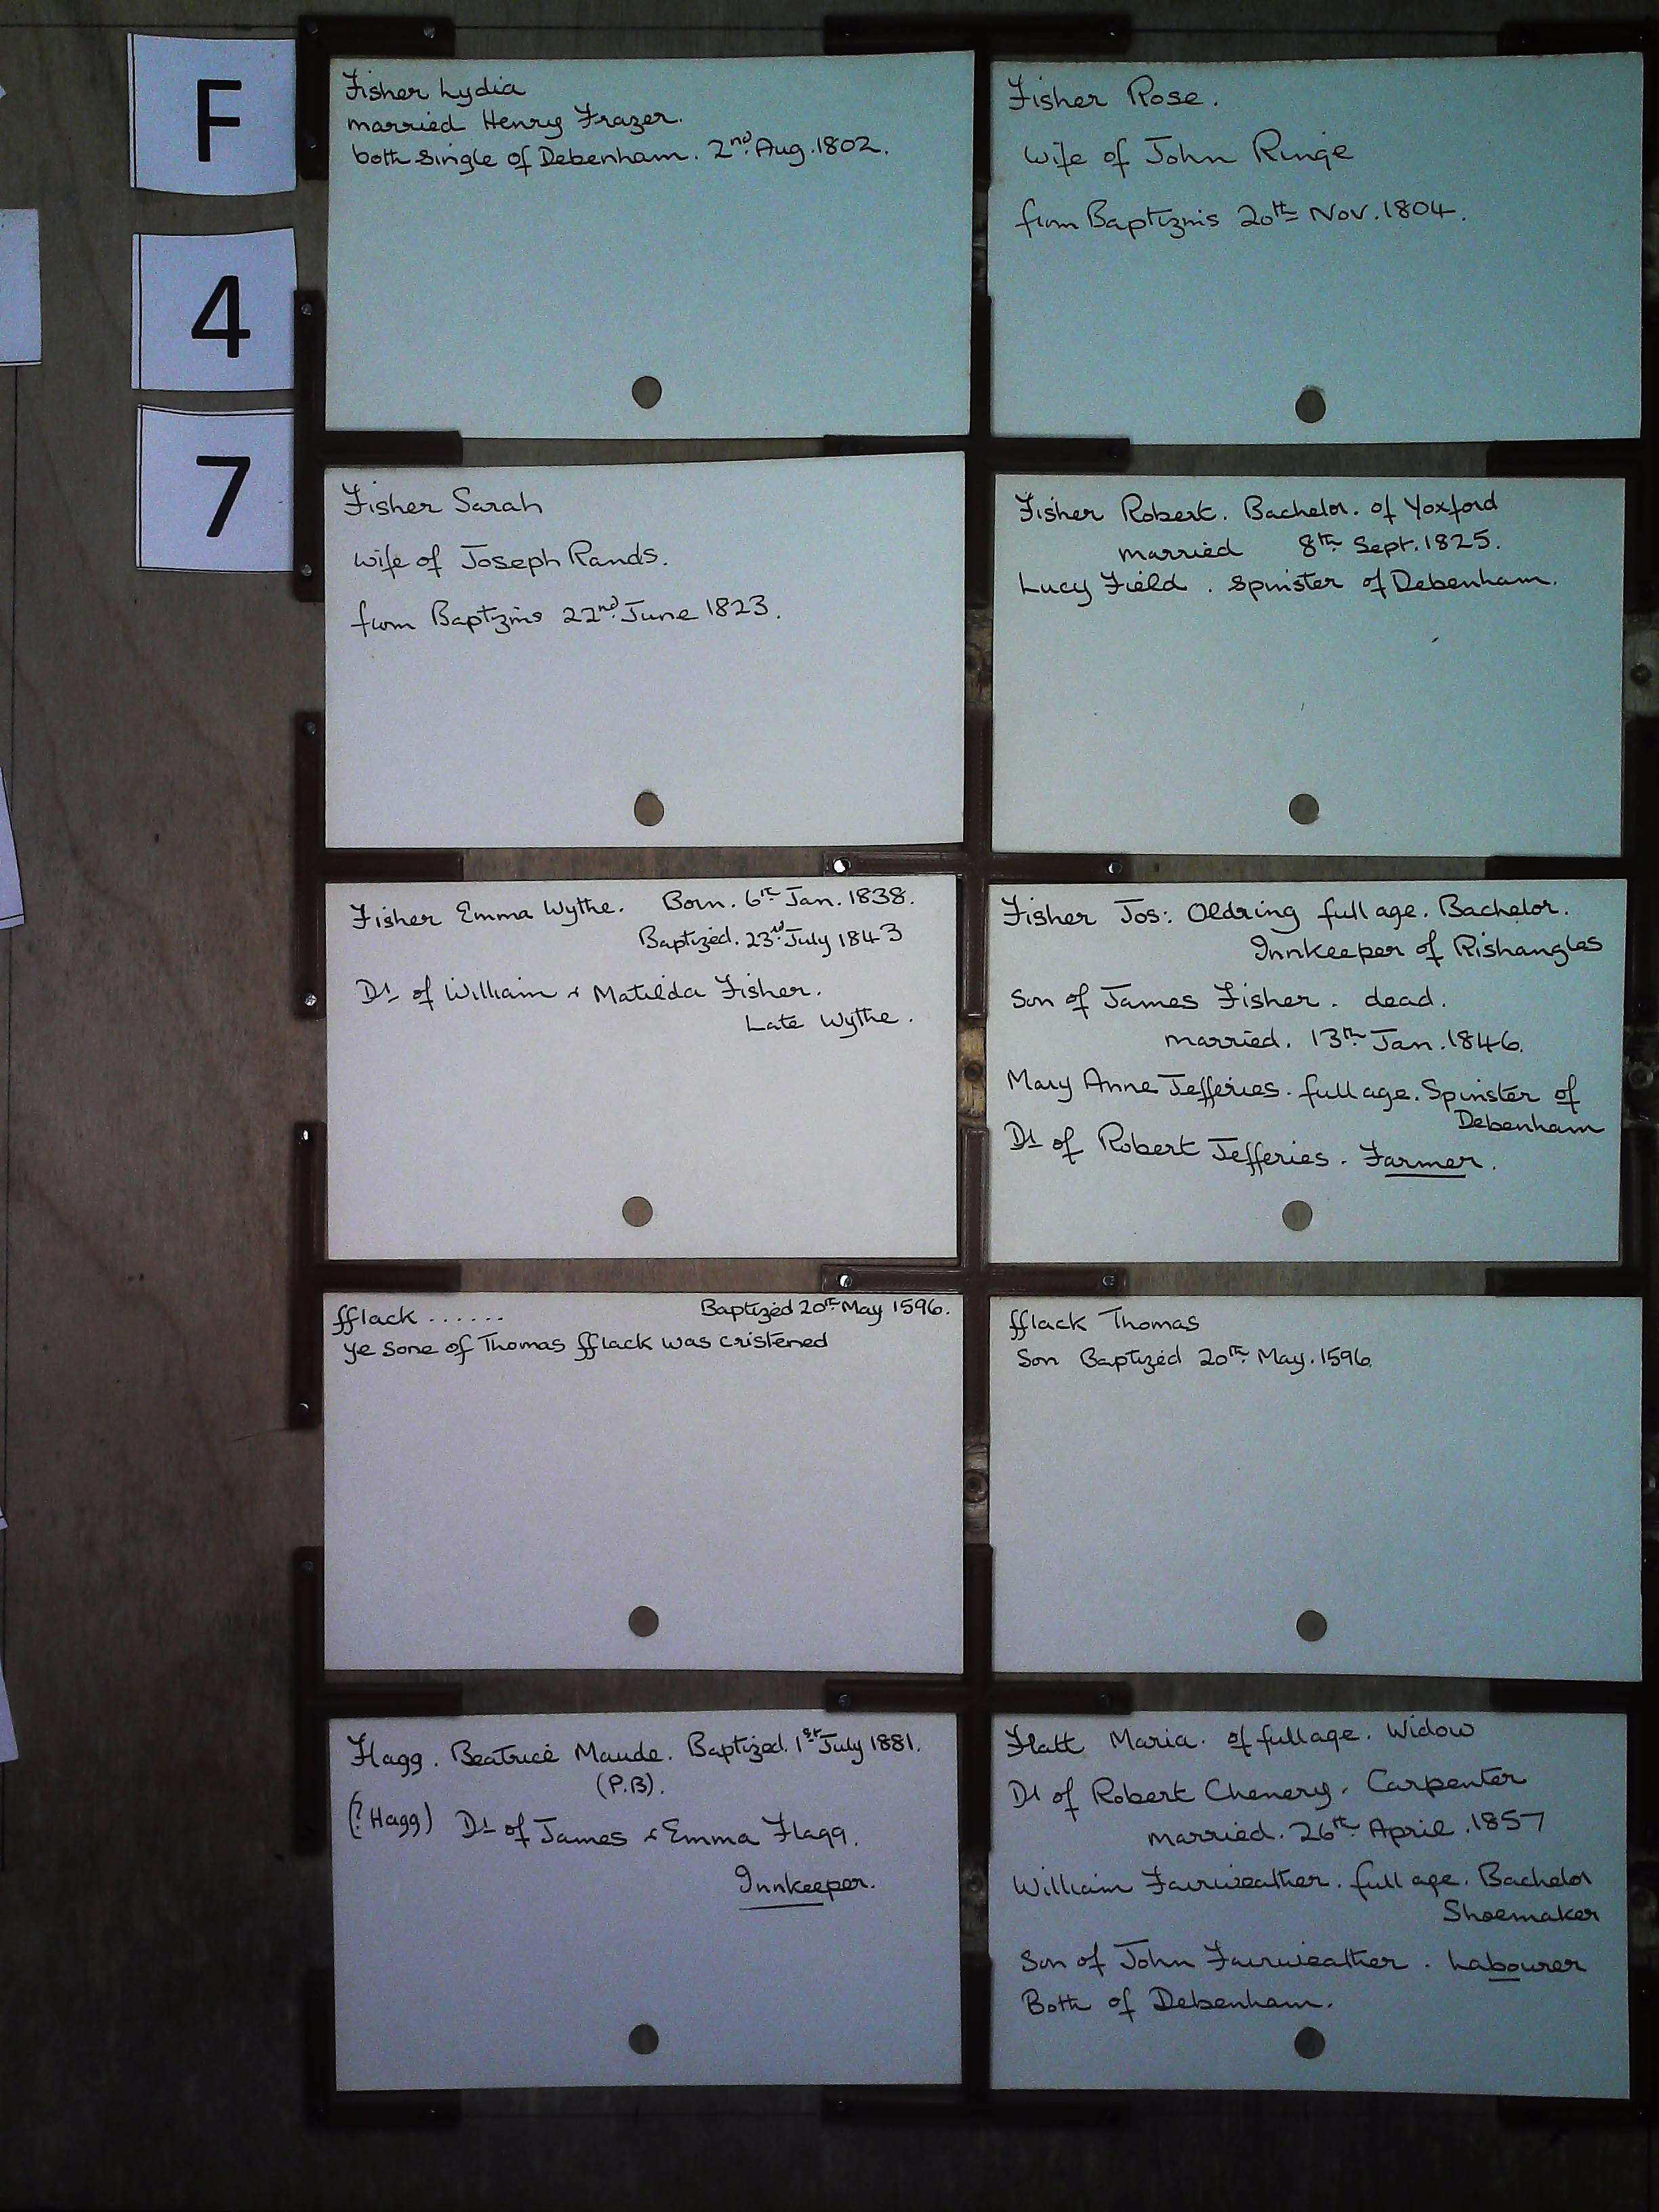 F
4
7
Fisher Lydia
married Henry Frazer.
both single of Debenham. 2nd. Aug. 1802.
Fisher Rose.
wife of John Ringe
from Baptizms 20th Nov. 1804.
Fisher Sarah
wife of Joseph Rands.
from Baptizms 22nd. June 1823.
Fisher Robert. Bachelor. of Yoxford
married 8th. Sept. 1825.
Lucy Field. Spinster of Debenham.
Fisher Emma Wythe. Born. 6th Jan. 1838.
Baptized. 23rd. July 1843
Dt of William & Matilda Fisher.
Late Wythe.
Fisher Jos: Oldring full age. Bachelor.
Innkeeper of Rishangles
Son of James Fisher. dead.
married. 13th. Jan. 1846.
Mary Anne Jefferies. full age. Spinster of
Debenham
Dt of Robert Jefferies. Farmer.
fflack ......   Baptized 20th May 1596.
ye sone of Thomas fflack was cristened
fflack Thomas
Son Baptized 20th. May. 1596.
Flagg. Beatrice Maude. Baptized. 1st July 1881.
(P.B).
(? Hagg) Dt of James & Emma Flagg.
Innkeeper.
Flatt Maria. of full age. Widow
Dt of Robert Chenery. Carpenter
married. 26th. April. 1857
William Fairweather. full age. Bachelor
Shoemaker
Son of John Fairweather. Labourer
Both of Debenham.